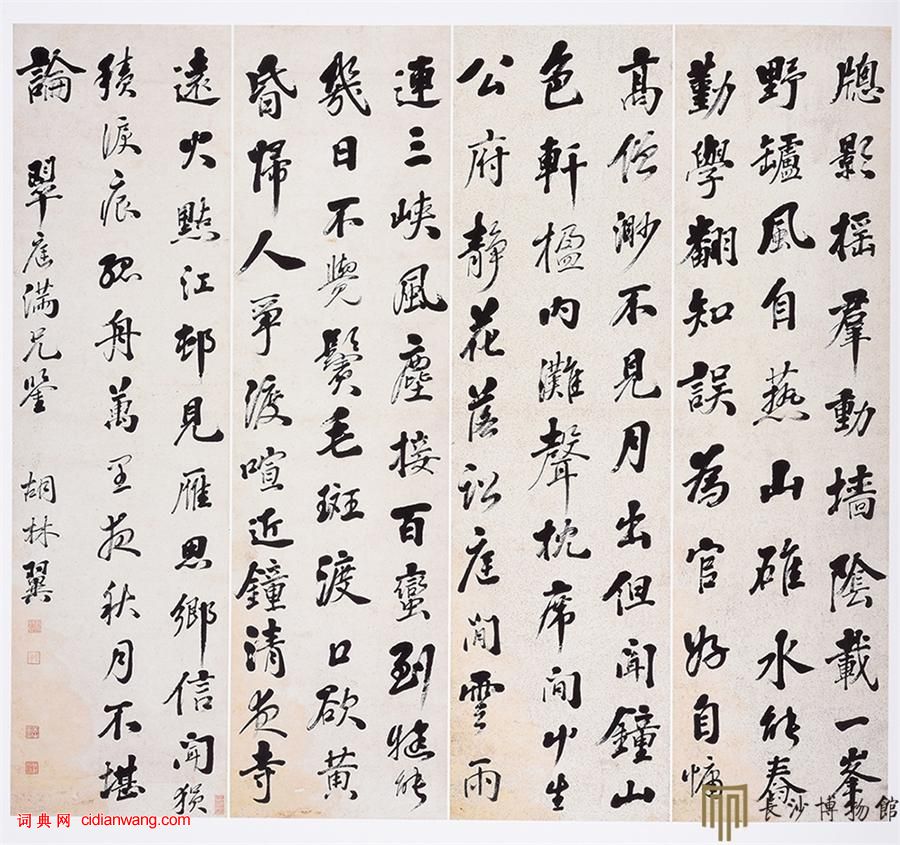 牕影搖羣動墻陰載一峯
野罏風自爇山碓水能舂
勤學翻知誤為官好自慵
高僧渺不見月出但聞鐘山
色軒楹內灘聲枕席間艸生
公府靜花落訟庭閒雲雨
連三峽風塵接百蠻到犍能
幾日不覺鬢毛斑渡口欲黃
昏歸人爭渡喧近鐘清夜寺
遠火點江邨見雁思鄉信聞猨
積淚痕孤舟萬里夜秋月不堪
論 翠崖滿兄鑒 胡林翼
词典网 cidianwang.com
長沙博物館